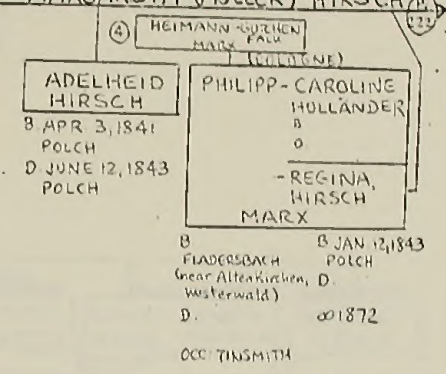 HIRSCH
222
4
HEIMANN-GUTHEN
FALK
MARX
(COLOGNE)
ADELHEID
HIRSCH
B APR 3, 1841
POLCH
D JUNE 12, 1843
POLCH
PHILIPP-CAROLINE
HOLLÄNDER
B
D
-REGINA,
HIRSCH
MARX
B
FLADERSBACH
(near Altenkirchen,
Westerwald)
D.
B JAN 12, 1843
POLCH
D.
∞ 1872
OCC: TINSMITH